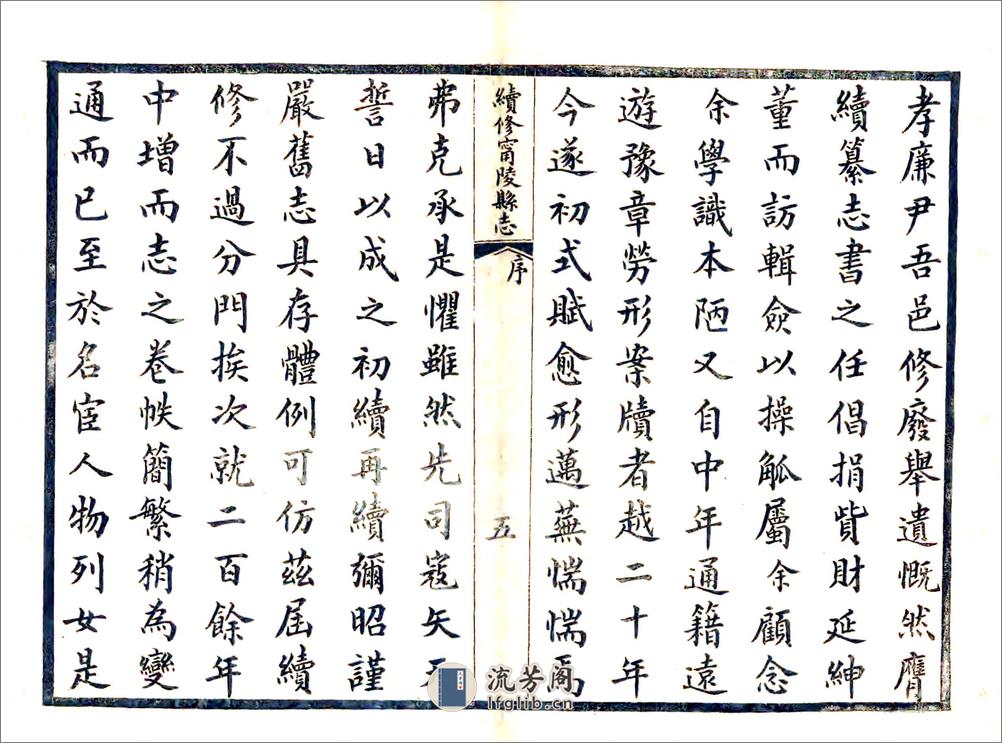 孝廉尹吾邑修廢舉遺慨然膺
續纂志書之任倡捐貲財延紳
董而訪輯僉以操觚屬余顧念
余學識本陋又自中年通籍遠
遊豫章勞形案牘者越二十年
今遂初式賦愈形邁蕪惴惴焉
續修甯陵縣志
序
五
弗克承是懼雖然先司寇矢天
誓日以成之初續再續彌昭謹
嚴舊志具存體例可仿茲屆續
修不過分門挨次就二百餘年
中增而志之卷帙簡繁稍為變
通而已至於名宦人物列女是
流芳阁
lfglib.cn